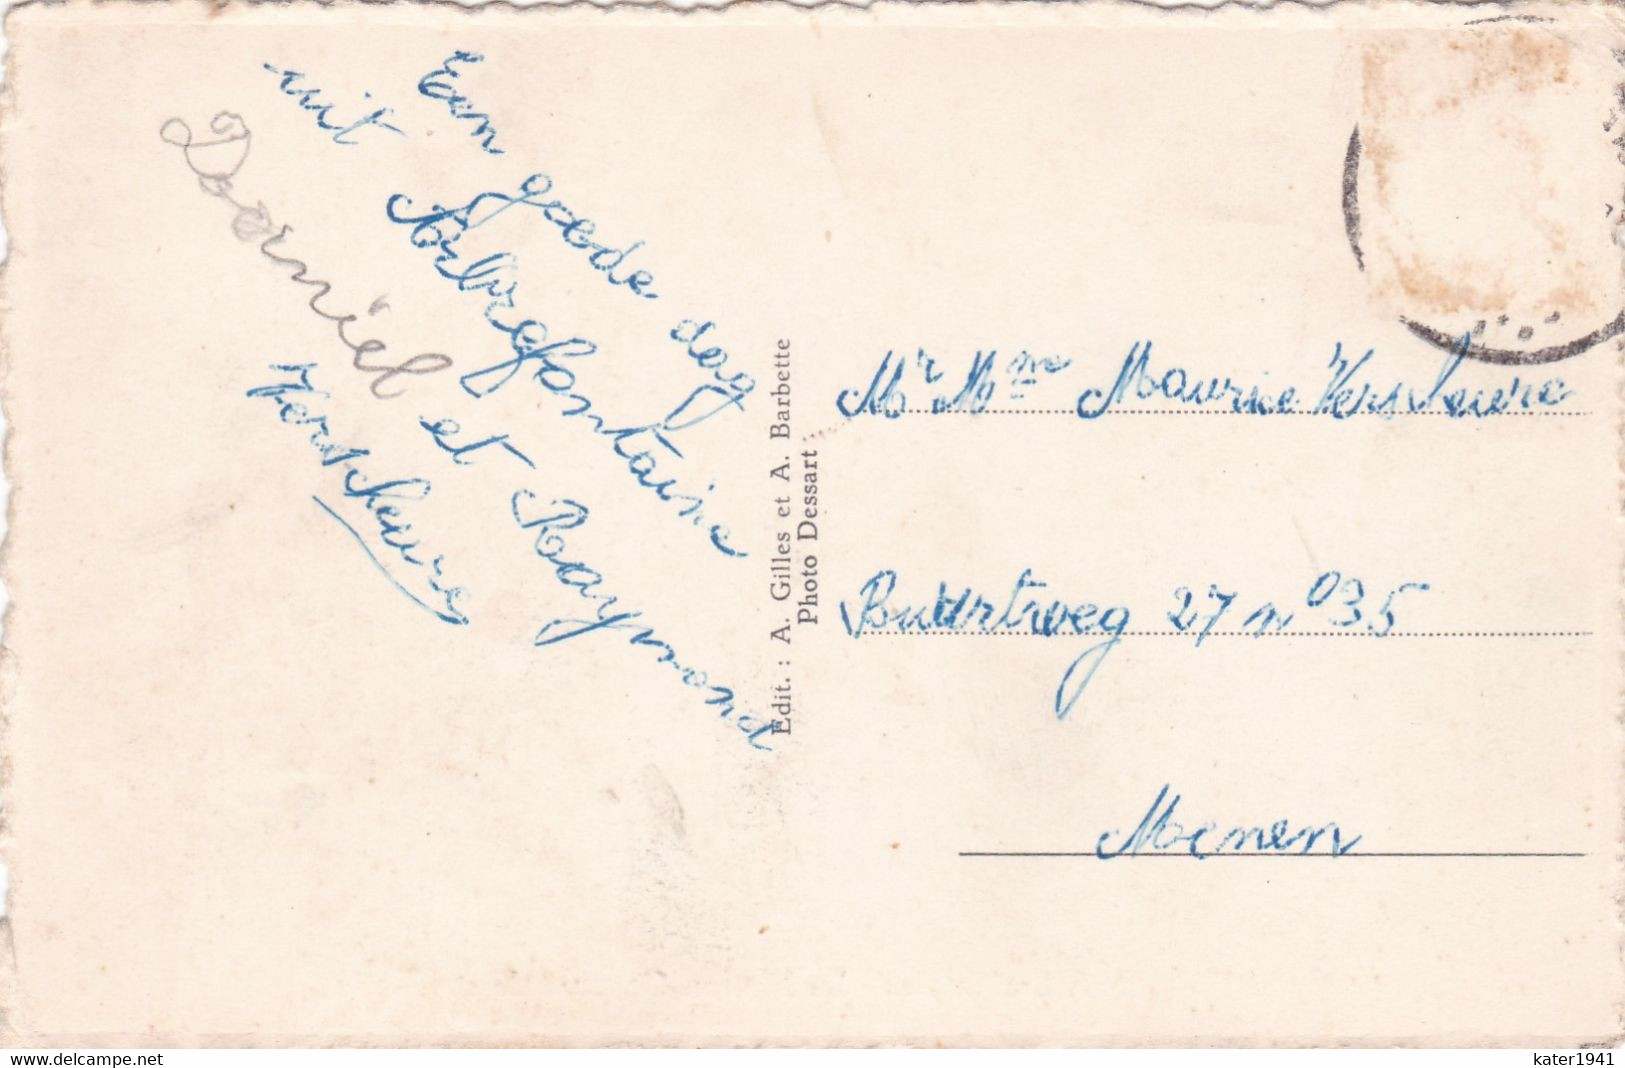 Een goede dag
uit Arbrefontaine
Daniel et Raymond
Verscheure
Edit. : A. Gilles et A. Barbette
Photo Dessart
Mr Mme Maurice Verscheure
27 no 35
Menen
www.delcampe.net
kater1941